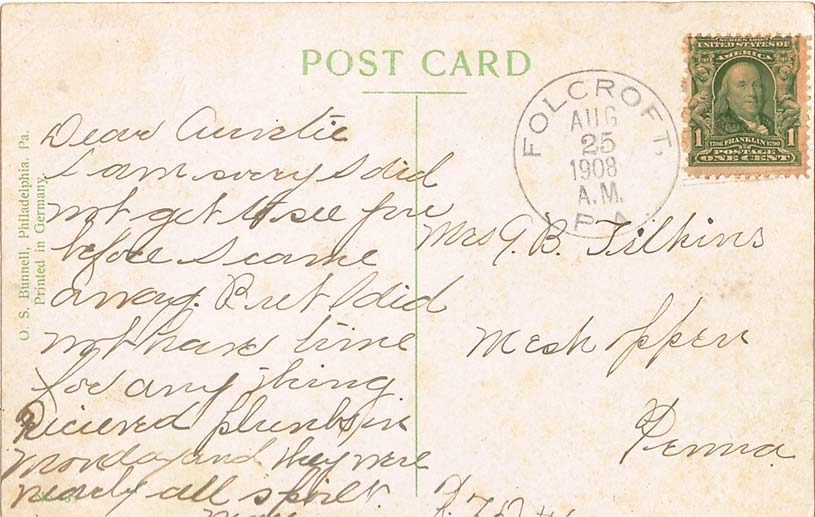 POST CARD
O. S. Bunnell, Philadelphia. Pa.
Printed in Germany.
Dear Auntie
I am sorry I did
not get to see you
before I came
away. But I did
not have time
for any thing
Recieved plumbs in
monday and they were
nearly all spoilt.
FOLCROFT,
AUG
25
1908
A.M.
PA
SERIES 1902
UNITED STATES OF
AMERICA
1 1
1706 FRANKLIN 1790
POSTAGE
ONE CENT
Mrs G. B. Filkins
Meshoppen
Penna